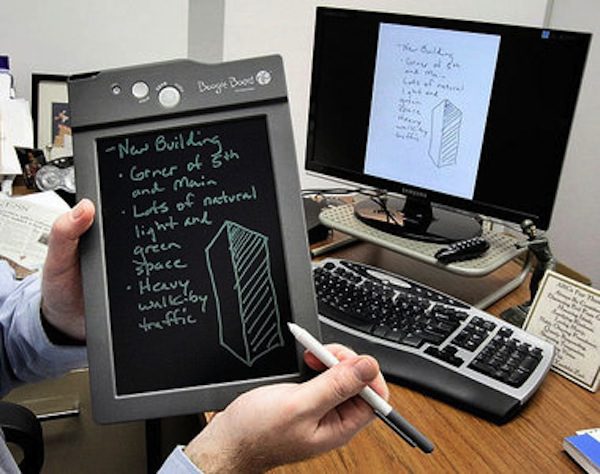 Boogie Board
- New Building
• Corner of 5th
and Main
• Lots of natural
light and
green
space
• Heavy
walk-by
traffic
- New Building
• Corner of 5th
and Main
• Lots of natural
light and
green
space
• Heavy
walk-by
traffic
SAMSUNG